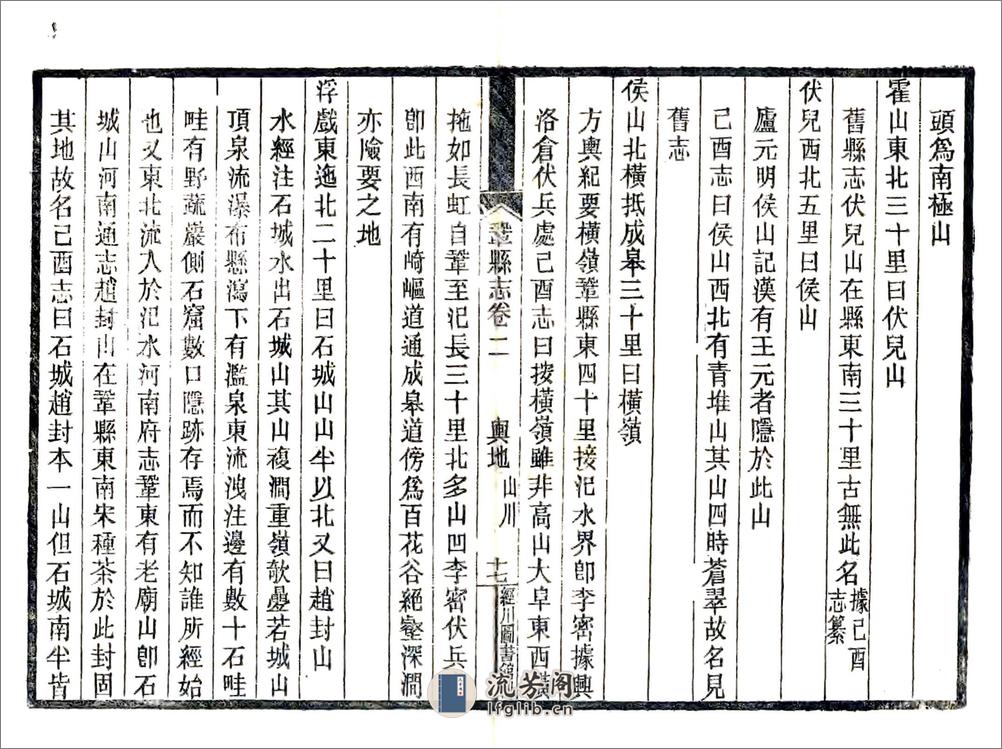 頭爲南極山
霍山東北三十里曰伏兒山
舊縣志伏兒山在縣東南三十里古無此名據己酉志纂
伏兒西北五里曰侯山
盧元明侯山記漢有王元者隱於此山
己酉志曰侯山西北有青堆山其山四時蒼翠故名見
舊志
侯山北橫抵成皋三十里曰橫嶺
方輿紀要橫嶺鞏縣東四十里接汜水界卽李密據興
洛倉伏兵處己酉志曰按橫嶺雖非高山大阜東西橫
鞏縣志卷二 輿地 山川 十七 經川圖書館
拖如長虹自鞏至汜長三十里北多山凹李密伏兵
卽此西南有崎嶇道通成皋道傍爲百花谷絕壑深澗
亦險要之地
浮戲東迤北二十里曰石城山山半以北又曰趙封山
水經注石城水出石城山其山複澗重嶺欹疊若城山
頂泉流瀑布懸瀉下有濫泉東流洩注邊有數十石畦
畦有野蔬巖側石窟數口隱跡存焉而不知誰所經始
也又東北流入於汜水河南府志鞏東有老廟山卽石
城山河南通志趙封山在鞏縣東南宋種茶於此封固
其地故名己酉志曰石城趙封本一山但石城南半皆
流芳阁
lfglib.cn